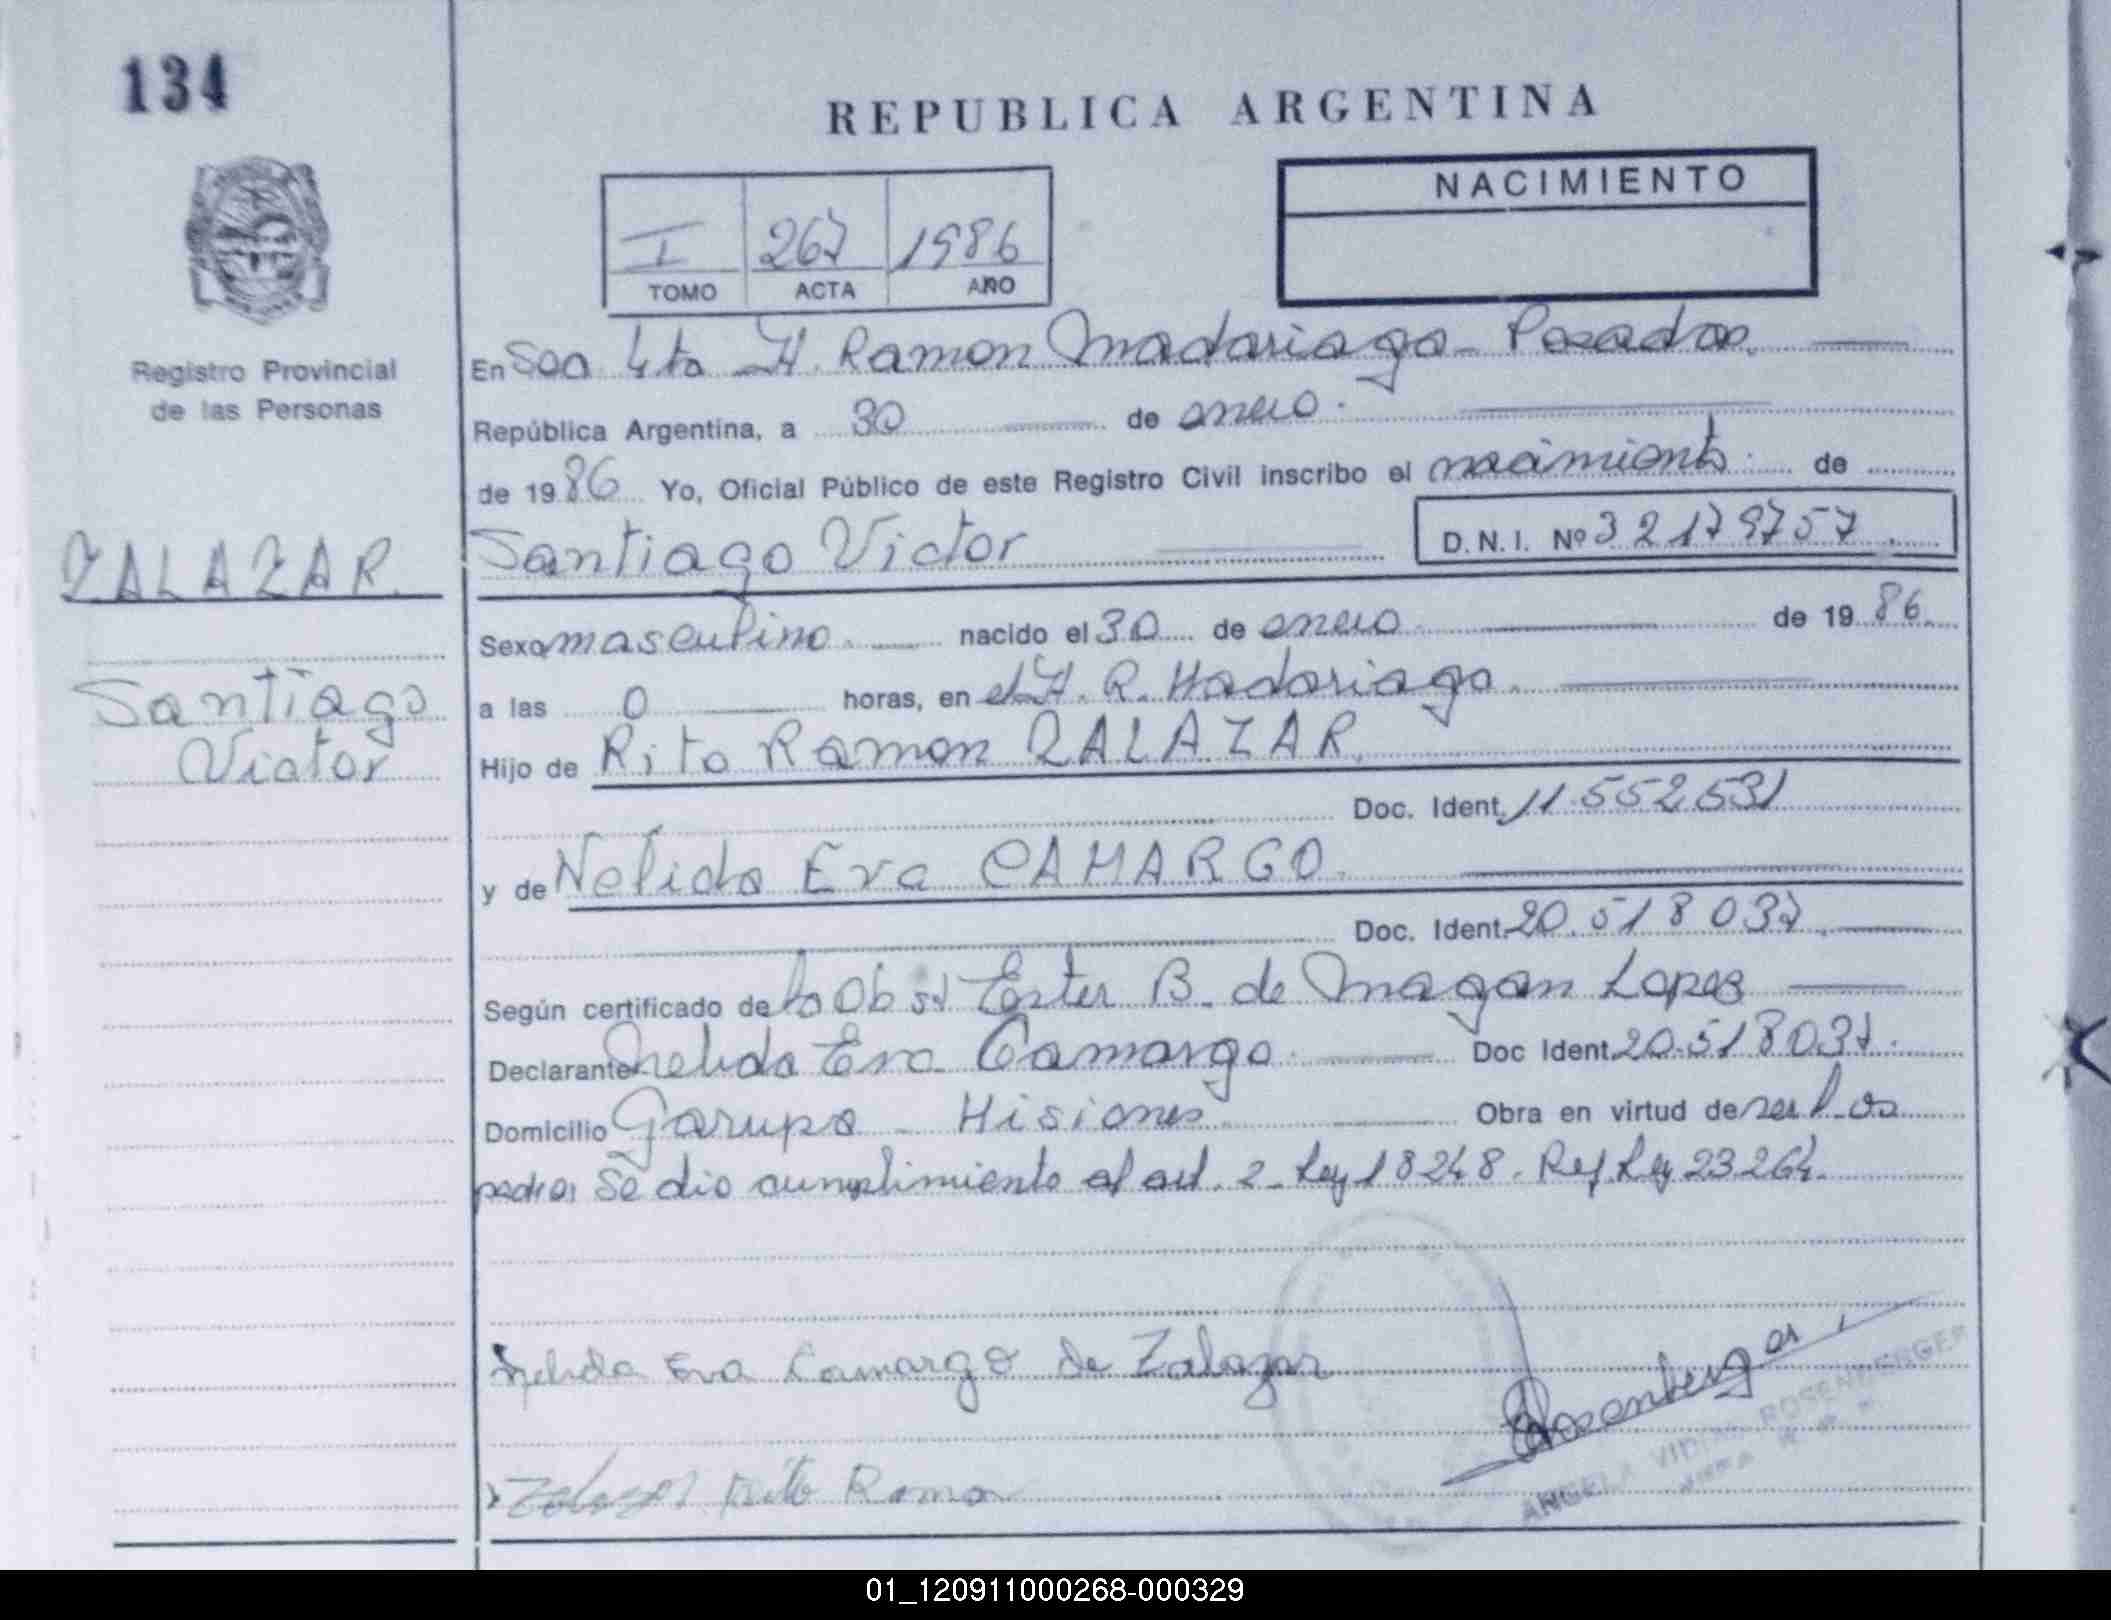 134
REPUBLICA ARGENTINA
NACIMIENTO
I 267 1986
TOMO ACTA AÑO
Registro Provincial
de las Personas
ZALAZAR
Santiago
Victor
En Scc 4ta H. Ramon Madariaga - Posadas.
República Argentina, a 30 de enero.
de 1986 Yo, Oficial Público de este Registro Civil inscribo el nacimiento. de
Santiago Victor D.N.I. Nº 32179757
Sexo masculino. nacido el 30 de enero de 1986.
a las 0 horas, en el H. R. Madariaga.
Hijo de Rito Ramon ZALAZAR.
Doc. Ident. 11.552531
y de Nelida Eva CAMARGO.
Doc. Ident. 20.518037.
Según certificado de la Obst Ester B. de Magan Lopez
Declarante Nelida Eva Camargo. Doc Ident. 20.518037.
Domicilio Garupa - Misiones Obra en virtud de ser los
padres Se dio cumplimiento al art. 2 - Ley 18248. Ref. Ley 23264.
Nelida Eva Camargo de Zalazar
Zalazar Rito Ramon
Rosenberger
ANGELA ROSENBERGER
01_120911000268-000329